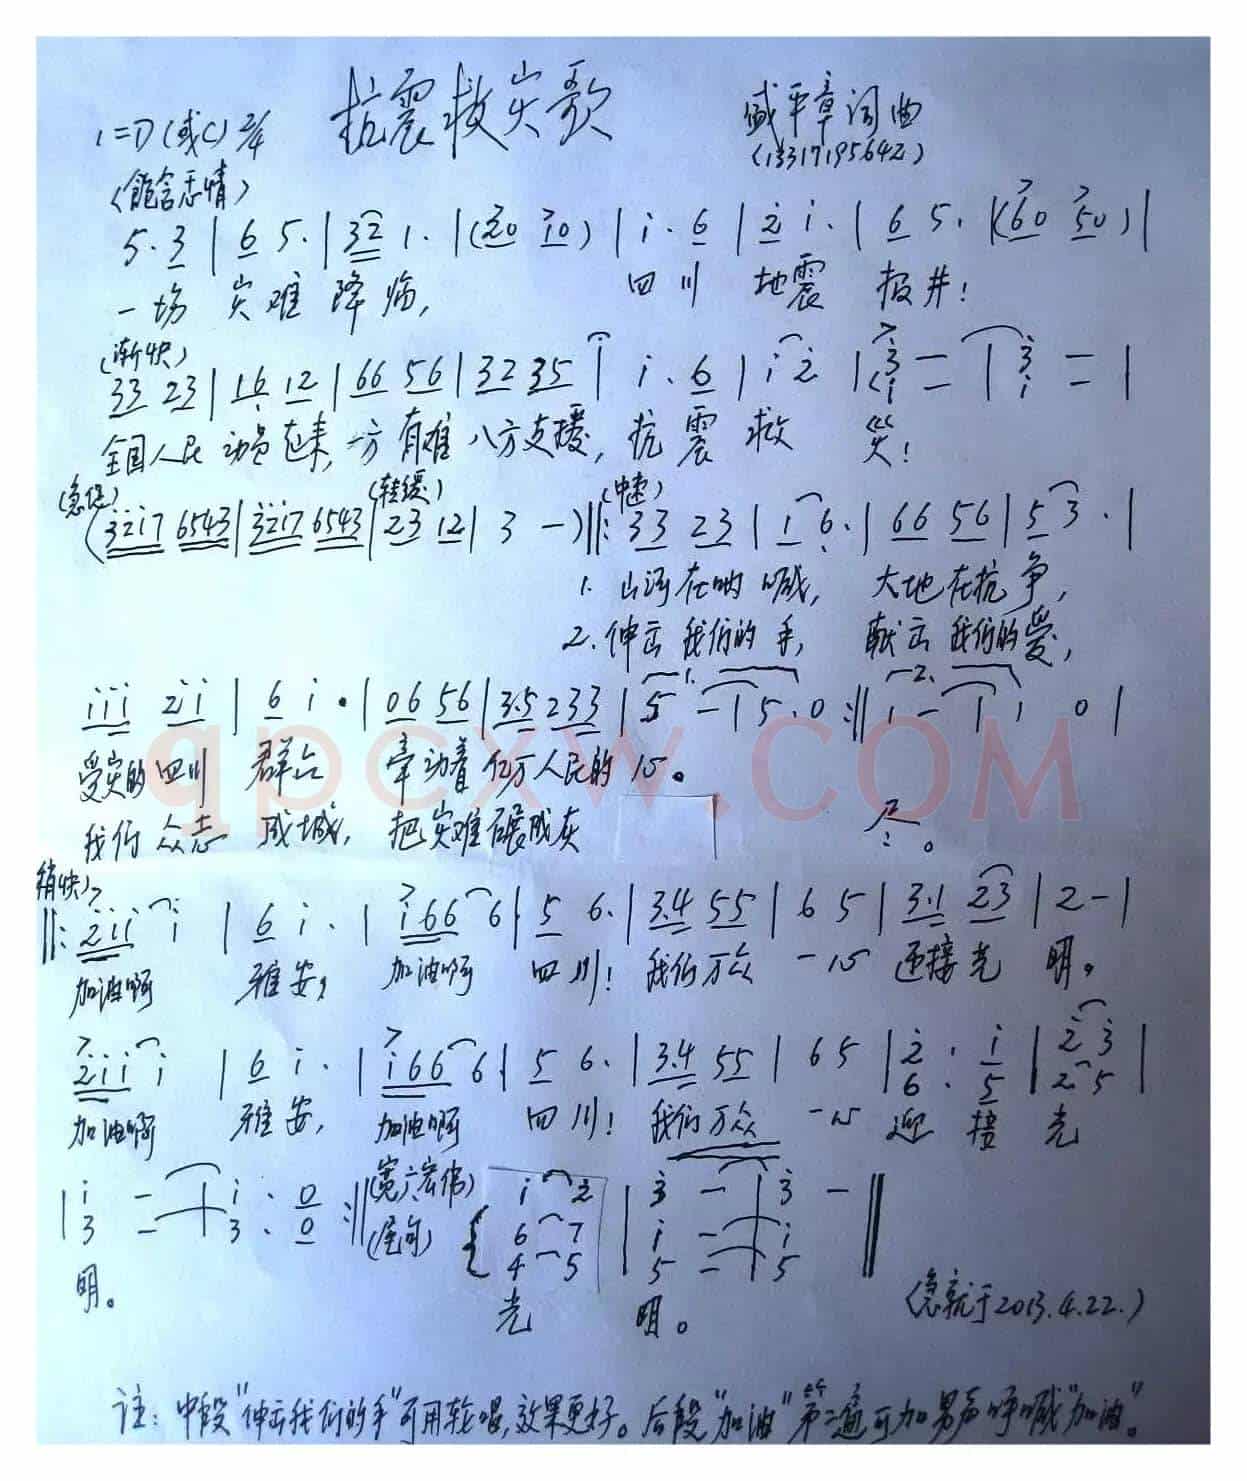 抗震救灾歌
1=D(或C) 2/4
盛平章词曲
(13317195642)
(饱含悲情)
5. 3 | 6 5. | 32 1. | (20 10) | i. 6 | 2 i. | 6 5. | (60 50) |
一场 灾难 降临, 四川 地震 报井!
(渐快)
33 23 | 16 12 | 66 56 | 32 35 | i. 6 | i 2 | 3 - | 3 - |
1 - | 1 -
全国人民 动员起来, 一方有难 八方支援, 抗震救灾!
(急促) (转缓) (中速)
(3217 6543 | 3217 6543 | 23 12 | 3 -) ‖: 33 23 | 1 6. | 66 56 | 5 3. |
1. 山河在呐喊, 大地在抗争,
2. 伸出我们的手, 献出我们的爱,
1. 2.
iii 2ii | 6 i. | 06 56 | 3.5 233 | 5 - | 5. 0 :‖ 1 - | 1 0 |
受灾的四川 群众 牵动着亿万人民的心。
我们众志 成城, 把灾难碾成灰
尽。
qpcxw.COM
稍快)
‖: 2ii i | 6 i. | i66 6. | 5 6. | 3.4 55 | 6 5 | 3.1 23 | 2 - |
加油啊 雅安, 加油啊 四川! 我们万众 一心 迎接光 明。
2ii i | 6 i. | i66 6. | 5 6. | 3.4 55 | 6 5 | 2. i | 2 3 |
6. 5 | 2 5
加油啊 雅安, 加油啊 四川! 我们万众 一心 迎接光
| i - | i. 0 :‖ (宽广宏伟) i 2 | 3 - | 3 - ‖
3 - | 3. 0 (尾句) 6 7 | i - | i
4 5 | 5 - | 5
明。 光 明。
(急就于2013.4.22.)
注: 中段"伸出我们的手"可用轮唱,效果更好。后段"加油"第二遍可加男声呼喊"加油"。